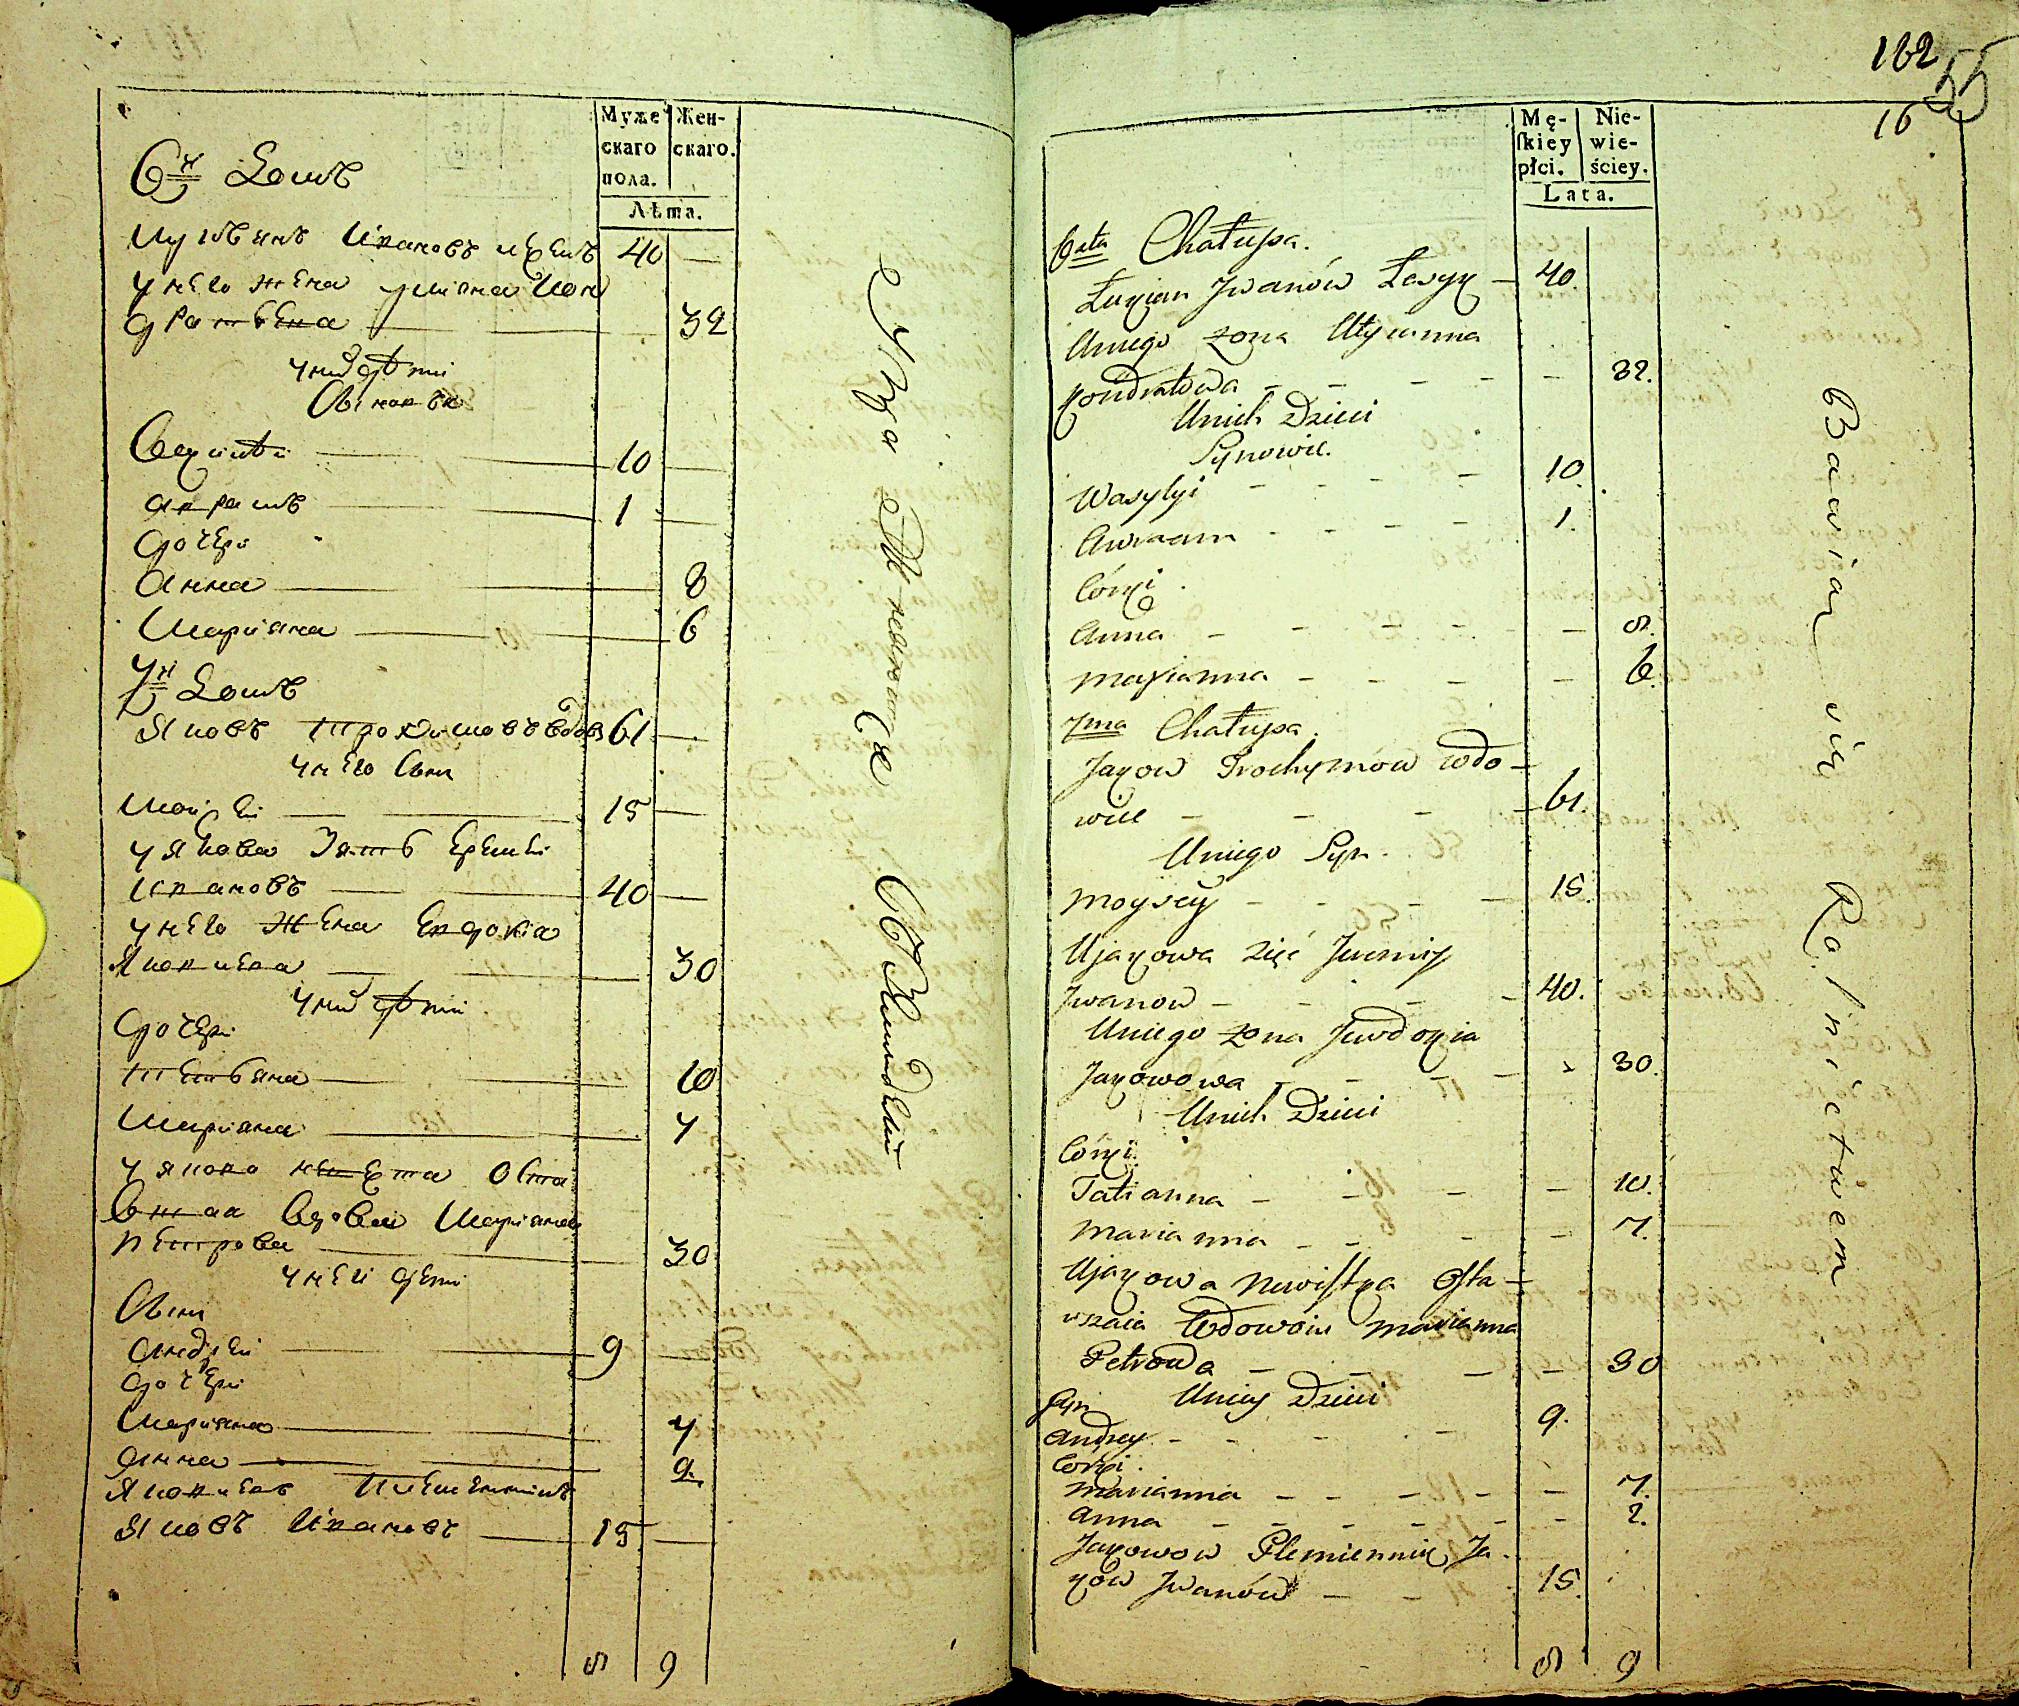 Муже
скаго
пола.
Жен-
скаго.
Лѣта.
6й Домъ
Лукьянъ Ивановъ 40 —
у него жена Ульяна Кон
дратьева — 32
у ниχ дѣти
Сыновья
Василѣй — 10 —
Авраамъ — 1 —
Дочери
Анна — 8
Марiяна — 6
7й Домъ
Яковъ Трохимовъ вдов 61 —
у него Сын
Мойсей — 15 —
у Якова Зять Еремей
Ивановъ — 40 —
у него Жена Евдокiя
Яковлева — 30
у ниχ дѣти
Дочери
Татьяна — 10
Марiяна — 7
у Якова невѣстка Оста
вшая вдовою Марiяна
Петрова — 30
у ней дети
Сын
Андрей — 9 —
Дочери
Марiяна — 7
Анна — 2.
Яковлевъ Племенникъ
Яковъ Ивановъ — 15 —
8 9
162
55
16
Mę-
skiey
płci.
Nie-
wie-
ściey.
Lata.
6sta Chałupa.
Łukian Iwanów — 40.
Uniego żona Ulyianna
Kondratowa — 32.
Unich Dzieci
Synowie.
Wasylyi — 10.
Awraam — 1.
Córki.
Anna — 8.
Maryanna — 6.
7ma Chałupa.
Jakow Trochymów wdo-
wiec — 61.
Uniego Syn.
Moysey — 15.
Ujakowa zięć Jeremiy
Iwanow — 40.
Uniego żona Jewdokia
Jakowowa — 30.
Unich Dzieci
Córki.
Tatianna — 10.
Marianna — 7.
Ujakowa Newistka Osta-
wszaia Wdowoiu Marianna
Petrowa — 30
Uniey Dzieci
Syn
Andrey — 9.
Córki.
Marianna — 7.
Anna — 2.
Jakowow Plemiennik Ja-
ków Iwanów — 15.
8 9
Bawią się Rolnictwem